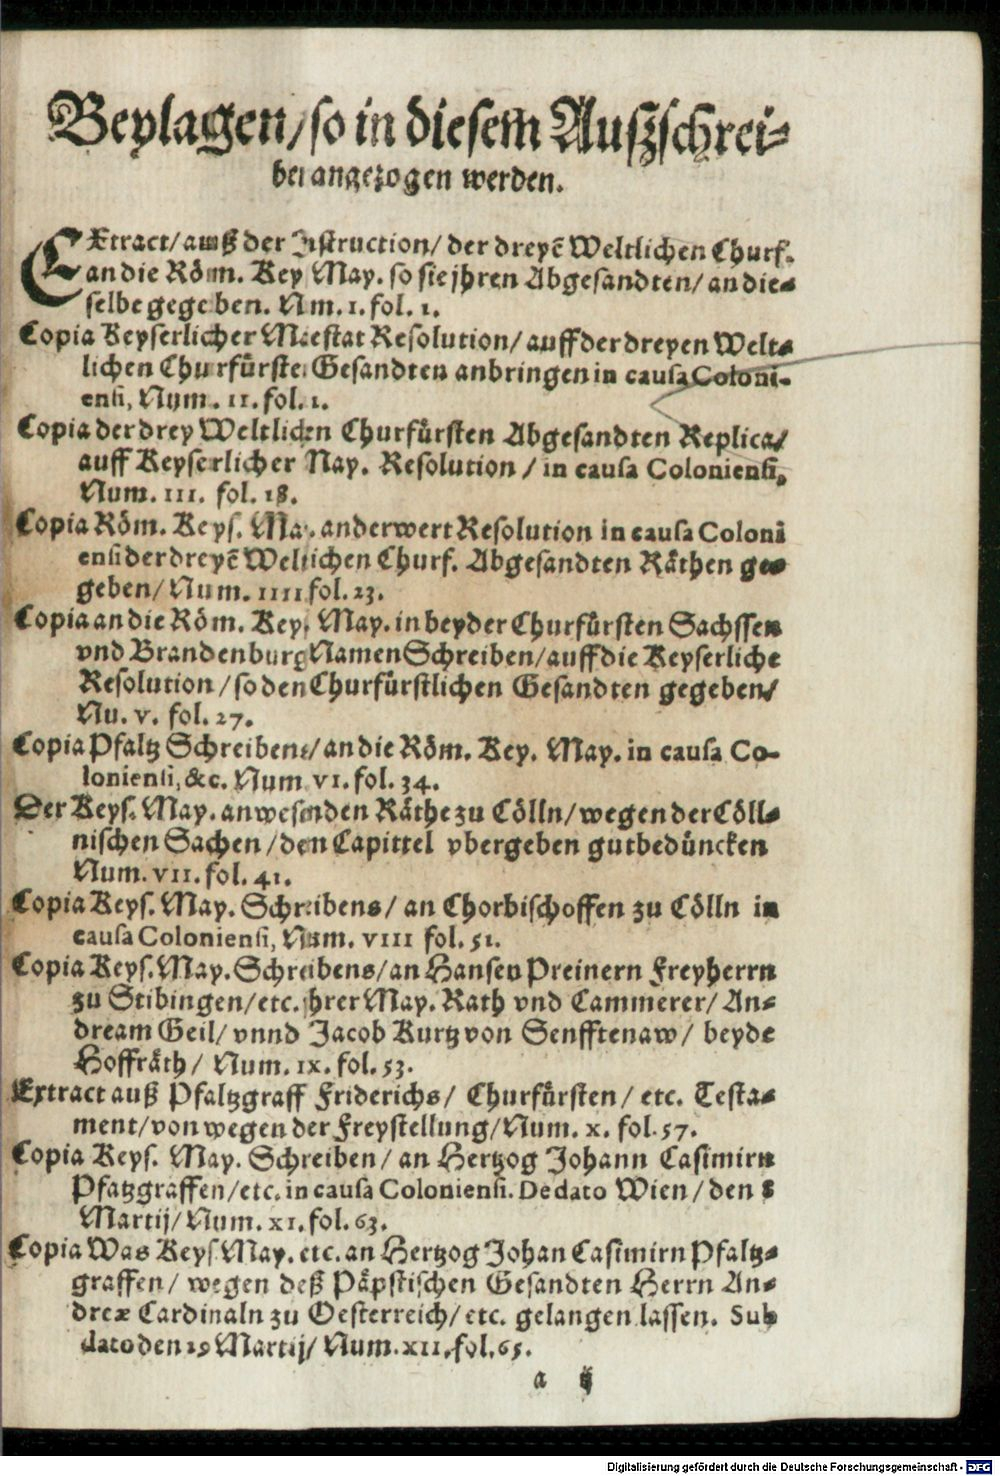 Beylagen/so in diesem Außschrei-
ben angezogen werden.
EXtract/auß der Instruction/der dreyē Weltlichen Churf.
an die Röm. Key May. so sie jhren Abgesandten/an die-
selbe gegeben. Num. 1. fol. 1.
Copia Keyserlicher Maiestat Resolution/auff der dreyen Welt-
lichen Churfürsten Gesandten anbringen in causa Coloni-
ensi, Num. II. fol. 1.
Copia der drey Weltlichen Churfürsten Abgesandten Replica/
auff Keyserlicher May. Resolution/in causa Coloniensi,
Num. III. fol. 18.
Copia Röm. Keys. May. anderwert Resolution in causa Coloni
ensi der dreyē Weltlichen Churf. Abgesandten Räthen ge-
geben/Num. IIII fol. 23.
Copia an die Röm. Key. May. in beyder Churfürsten Sachssen
vnd Brandenburg Namen Schreiben/auff die Keyserliche
Resolution/so den Churfürstlichen Gesandten gegeben/
Nu. V. fol. 27.
Copia Pfaltz Schreibens/an die Röm. Key. May. in causa Co-
loniensi, &c. Num VI. fol. 34.
Der Keys. May. anwesenden Räthe zu Cölln/wegen der Cöll-
nischen Sachen/den Capittel vbergeben gutbedüncken
Num. VII. fol. 41.
Copia Keys. May. Schreibens/an Chorbischoffen zu Cölln in
causa Coloniensi, Num. VIII fol. 51.
Copia Keys. May. Schreibens/an Hansen Preinern Freyherrn
zu Stibingen/etc. jhrer May. Rath vnd Cammerer/An-
dream Geil/vnnd Jacob Kurtz von Senfftenaw/beyde
Hoffräth/Num. IX. fol. 53.
Extract auß Pfaltzgraff Friderichs/Churfürsten/etc. Testa-
ment/von wegen der Freystellung/Num. X. fol. 57.
Copia Keys. May. Schreiben/an Hertzog Johann Casimirn
Pfatzgraffen/etc. in causa Coloniensi. De dato Wien/den 8
Martij/Num. XI. fol. 63.
Copia Was Keys May. etc. an Hertzog Johan Casimirn Pfaltz-
graffen/wegen deß Päpstischen Gesandten Herrn An-
dreæ Cardinaln zu Oesterreich/etc. gelangen lassen. Sub
dato den 19 Martij/Num. XII. fol. 65.
a ij
Digitalisierung gefördert durch die Deutsche Forschungsgemeinschaft - DFG